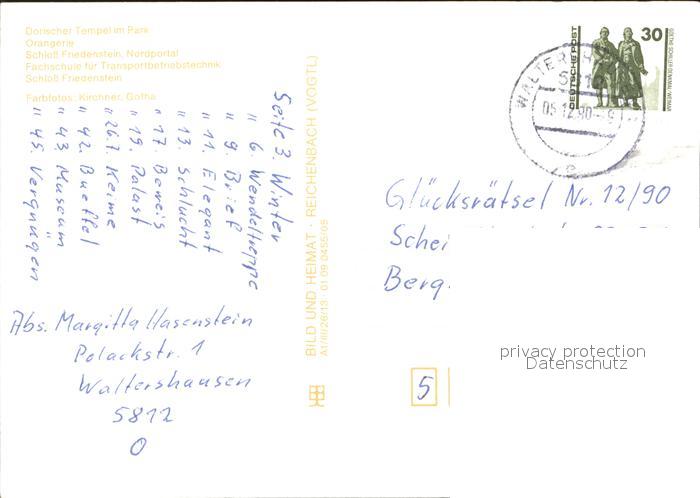 Dorischer Tempel im Park
Orangerie
Schloß Friedenstein, Nordportal
Fachschule für Transportbetriebstechnik
Schloß Friedenstein
Farbfotos: Kirchner, Gotha
Seite 3. Winter
" 6. Wendeltreppe
" 9. Brief
" 11. Elegant
" 13. Schlucht
" 17. Beweis
" 19. Palast
" 26. Keime
" 42. Bueffel
" 43. Museum
" 45. Vergnügen
Abs. Margitta Hasenstein
Polackstr. 1
Waltershausen
5812
O
BILD UND HEIMAT · REICHENBACH (VOGTL)
A1/III/26/13 · 01 09 0455/09
DEUTSCHE POST
30
GOETHE-SCHILLER-DENKMAL WEIMAR
WALTERSH
05.12.90
Glücksrätsel Nr. 12/90
Schei
Berg.
5
privacy protection
Datenschutz